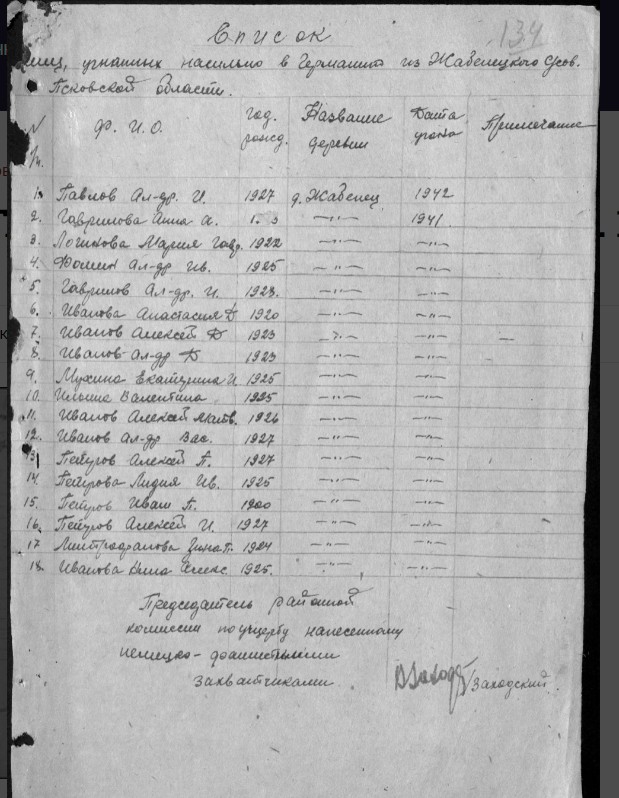 134
Список
лиц, угнанных насильно в Германию из Жабенецкого с/сов.
Псковской области.
N п/п. Ф. И. О. год. рожд. Название деревни Дата угона Примечание
1. Павлов Ал-др. И. 1927 д. Жабенец 1942
2. Гаврилова Анна А. —"— 1941.
3. Логинова Мария Гавр. 1922 —"— —"—
4. Фомин Ал-др Ив. 1925 —"— —"—
5. Гаврилов Ал-др. И. 1923. —"— —"—
6. Иванова Анастасия Д 1920 —"— —"—
7. Иванов Алексей Д 1923 —"— —"— —
8. Иванов Ал-др Д 1923 —"— —"—
9. Мухина Екатерина И. 1925 —"— —"—
10. Ильина Валентина 1925 —"— —"—
11. Иванов Алексей Матв. 1926 —"— —"—
12. Иванов Ал-др Вас. 1927 —"— —"—
13. Петров Алексей П. 1927 —"— —"—
14. Петрова Лидия Ив. 1925 —"— —"—
15. Петров Иван П. 1900 —"— —"—
16. Петров Алексей И. 1927 —"— —"—
17 Митрофанова 1924 —"— —"—
18. Иванова Алекс. 1925. —"— —"—
Председатель районной
комиссии по ущербу нанесенному
немецко-фашистскими
захватчиками. /Заходский.